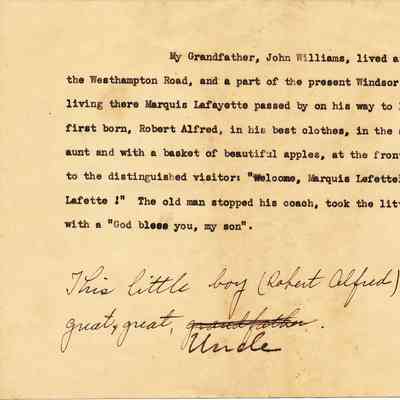 My Grandfather, John Williams, lived a
the Westhampton Road, and a part of the present Windsor
living there Marquis Lafayette passed by on his way to
first born, Robert Alfred, in his best clothes, in the
aunt and with a basket of beautiful apples, at the front
to the distinguished visitor: "Welcome, Marquis Lefette
Lafette !" The old man stopped his coach, took the lit
with a "God bless you, my son".
This little boy (Robert Alfred)
great, great, grandfather.
Uncle